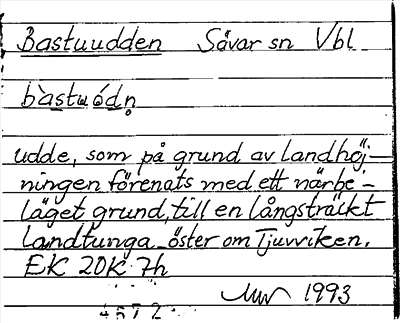 Bastuudden Sävar sn Vbl
bastuódn̥
udde, som på grund av landhöj-
ningen förenats med ett närbe-
läget grund, till en långsträckt
landtunga öster om Tjuvviken.
EK 20K 7h
1993
4572